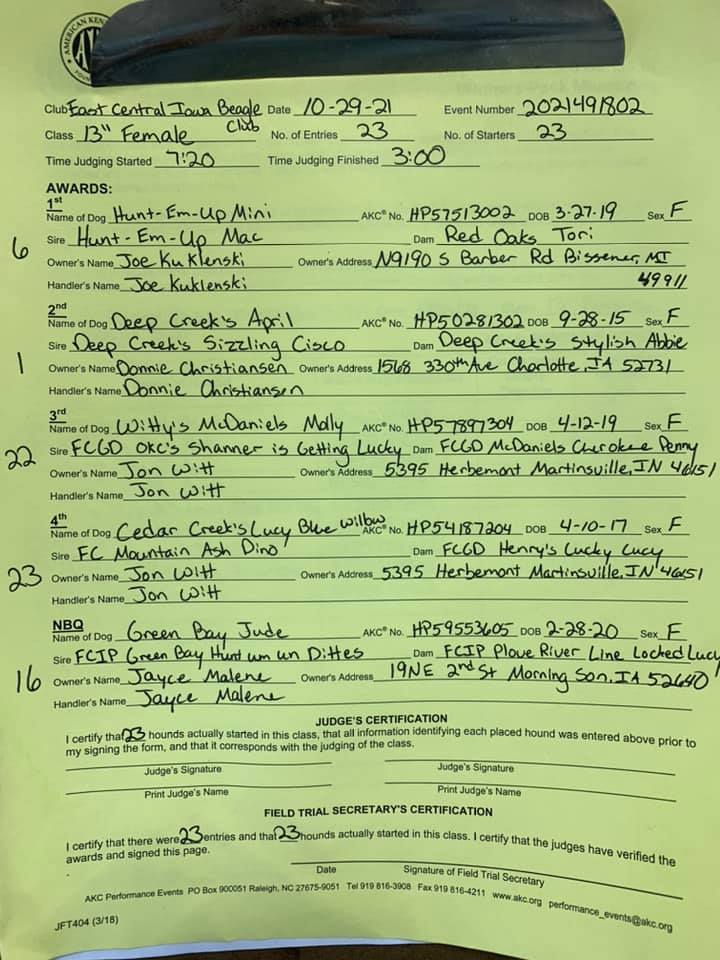 AMERICAN KEN
Club East Central Iowa Beagle Club Date 10-29-21 Event Number 2021491802
Class 13" Female No. of Entries 23 No. of Starters 23
Time Judging Started 7:20 Time Judging Finished 3:00
AWARDS:
1st
Name of Dog Hunt-Em-Up Mini AKC® No. HP57513002 DOB 3-27-19 Sex F
6 Sire Hunt-Em-Up Mac Dam Red Oaks Tori
Owner's Name Joe Kuklenski Owner's Address N9190 S Barber Rd Bissener, MI 49911
Handler's Name Joe Kuklenski
2nd
Name of Dog Deep Creek's April AKC® No. HP50281302 DOB 9-28-15 Sex F
Sire Deep Creek's Sizzling Cisco Dam Deep Creek's Stylish Abbie
1 Owner's Name Donnie Christiansen Owner's Address 1568 330th Ave Charlotte, IA 52731
Handler's Name Donnie Christiansen
3rd
Name of Dog Witty's McDaniels Molly AKC® No. HP57897304 DOB 4-12-19 Sex F
22 Sire FCGD OKC's Shanner is Getting Lucky Dam FCGD McDaniels Cherokee Penny
Owner's Name Jon Witt Owner's Address 5395 Herbemont Martinsville, IN 46151
Handler's Name Jon Witt
4th
Name of Dog Cedar Creek's Lucy Blue Willow AKC® No. HP54187204 DOB 4-10-17 Sex F
Sire FC Mountain Ash Dino Dam FCGD Henry's Lucky Lucy
23 Owner's Name Jon Witt Owner's Address 5395 Herbemont Martinsville, IN 46151
Handler's Name Jon Witt
NBQ
Name of Dog Green Bay Jude AKC® No. HP59553605 DOB 2-28-20 Sex F
Sire FCIP Green Bay Hunt um un Dittes Dam FCIP Plove River Line Locked Lucy
16 Owner's Name Jayce Malene Owner's Address 19NE 2nd St Morning Son, IA 52640
Handler's Name Jayce Malene
JUDGE'S CERTIFICATION
I certify that 23 hounds actually started in this class, that all information identifying each placed hound was entered above prior to
my signing the form, and that it corresponds with the judging of the class.
Judge's Signature Judge's Signature
Print Judge's Name Print Judge's Name
FIELD TRIAL SECRETARY'S CERTIFICATION
I certify that there were 23 entries and that 23 hounds actually started in this class. I certify that the judges have verified the
awards and signed this page.
Date Signature of Field Trial Secretary
AKC Performance Events PO Box 900051 Raleigh, NC 27675-9051 Tel 919 816-3908 Fax 919 816-4211 www.akc.org performance_events@akc.org
JFT404 (3/18)